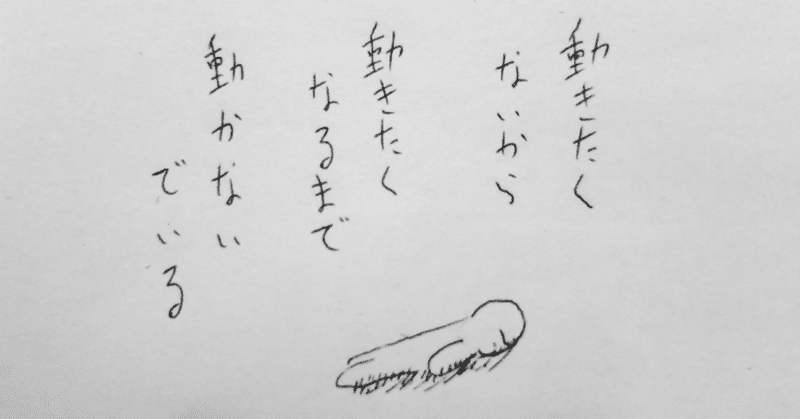 動きたく
ないから
動きたく
なるまで
動かない
でいる